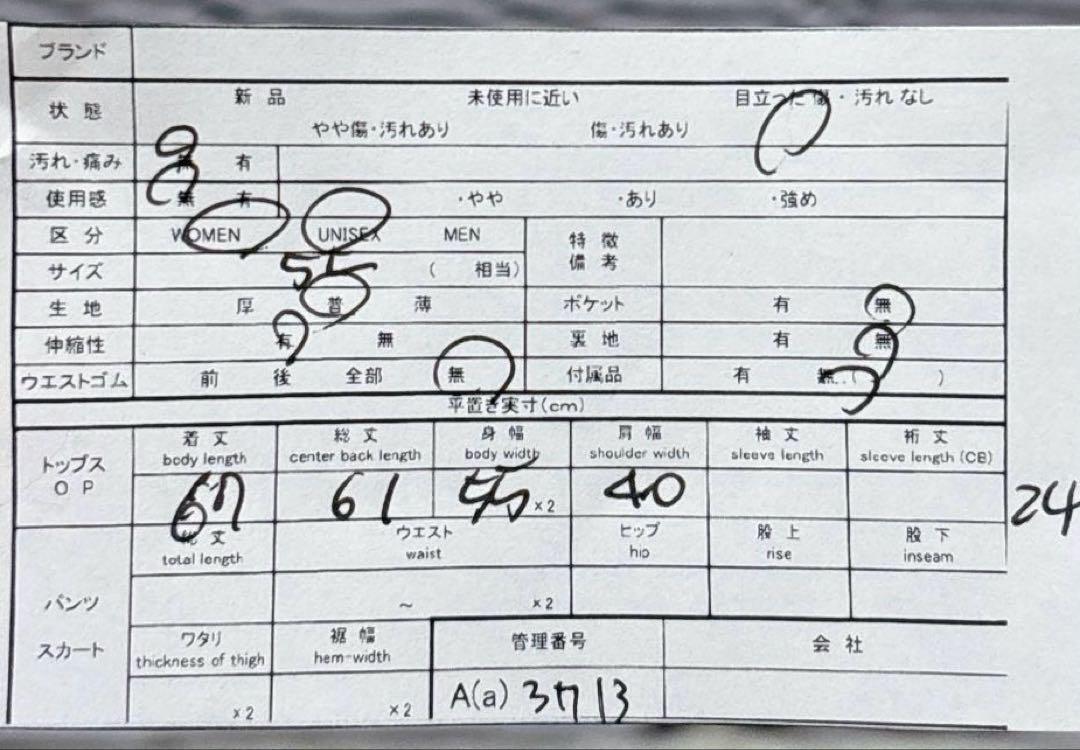 ブランド
状態 新品 未使用に近い 目立った傷・汚れなし
やや傷・汚れあり 傷・汚れあり
汚れ・痛み 無 有
使用感 無 有 ・やや ・あり ・強め
区分 WOMEN UNISEX MEN 特徴
備考
サイズ ( 相当)
生地 厚 普 薄 ポケット 有 無
伸縮性 有 無 裏地 有 無
ウエストゴム 前 後 全部 無 付属品 有 無‥( )
平置き実寸(cm)
着丈 総丈 身幅 肩幅 袖丈 裄丈
body length center back length body width shoulder width sleeve length sleeve length (CB)
トップス
OP 67 61 ×2 40 24
総丈 ウエスト ヒップ 股上 股下
total length waist hip rise inseam
パンツ ~ ×2
スカート ワタリ 裾幅 管理番号 会社
thickness of thigh hem-width
×2 ×2 A(a) 3713